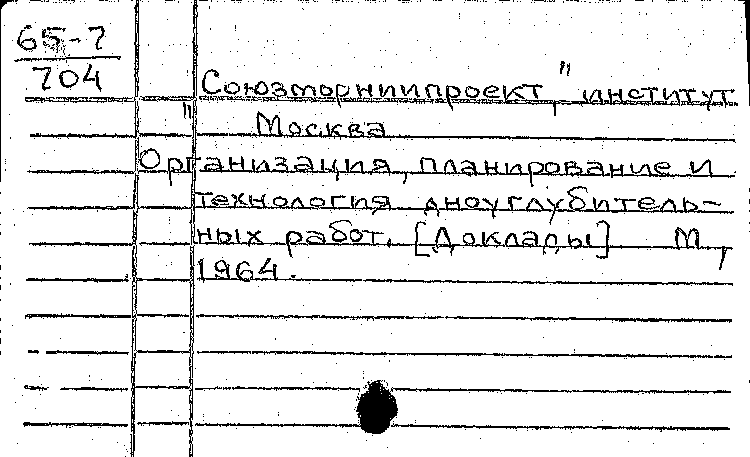 65-7
704
"Союзморниипроект", институт
Москва
Организация, планирование и
технология дноуглубитель-
ных работ. [Доклады] М,
1964.